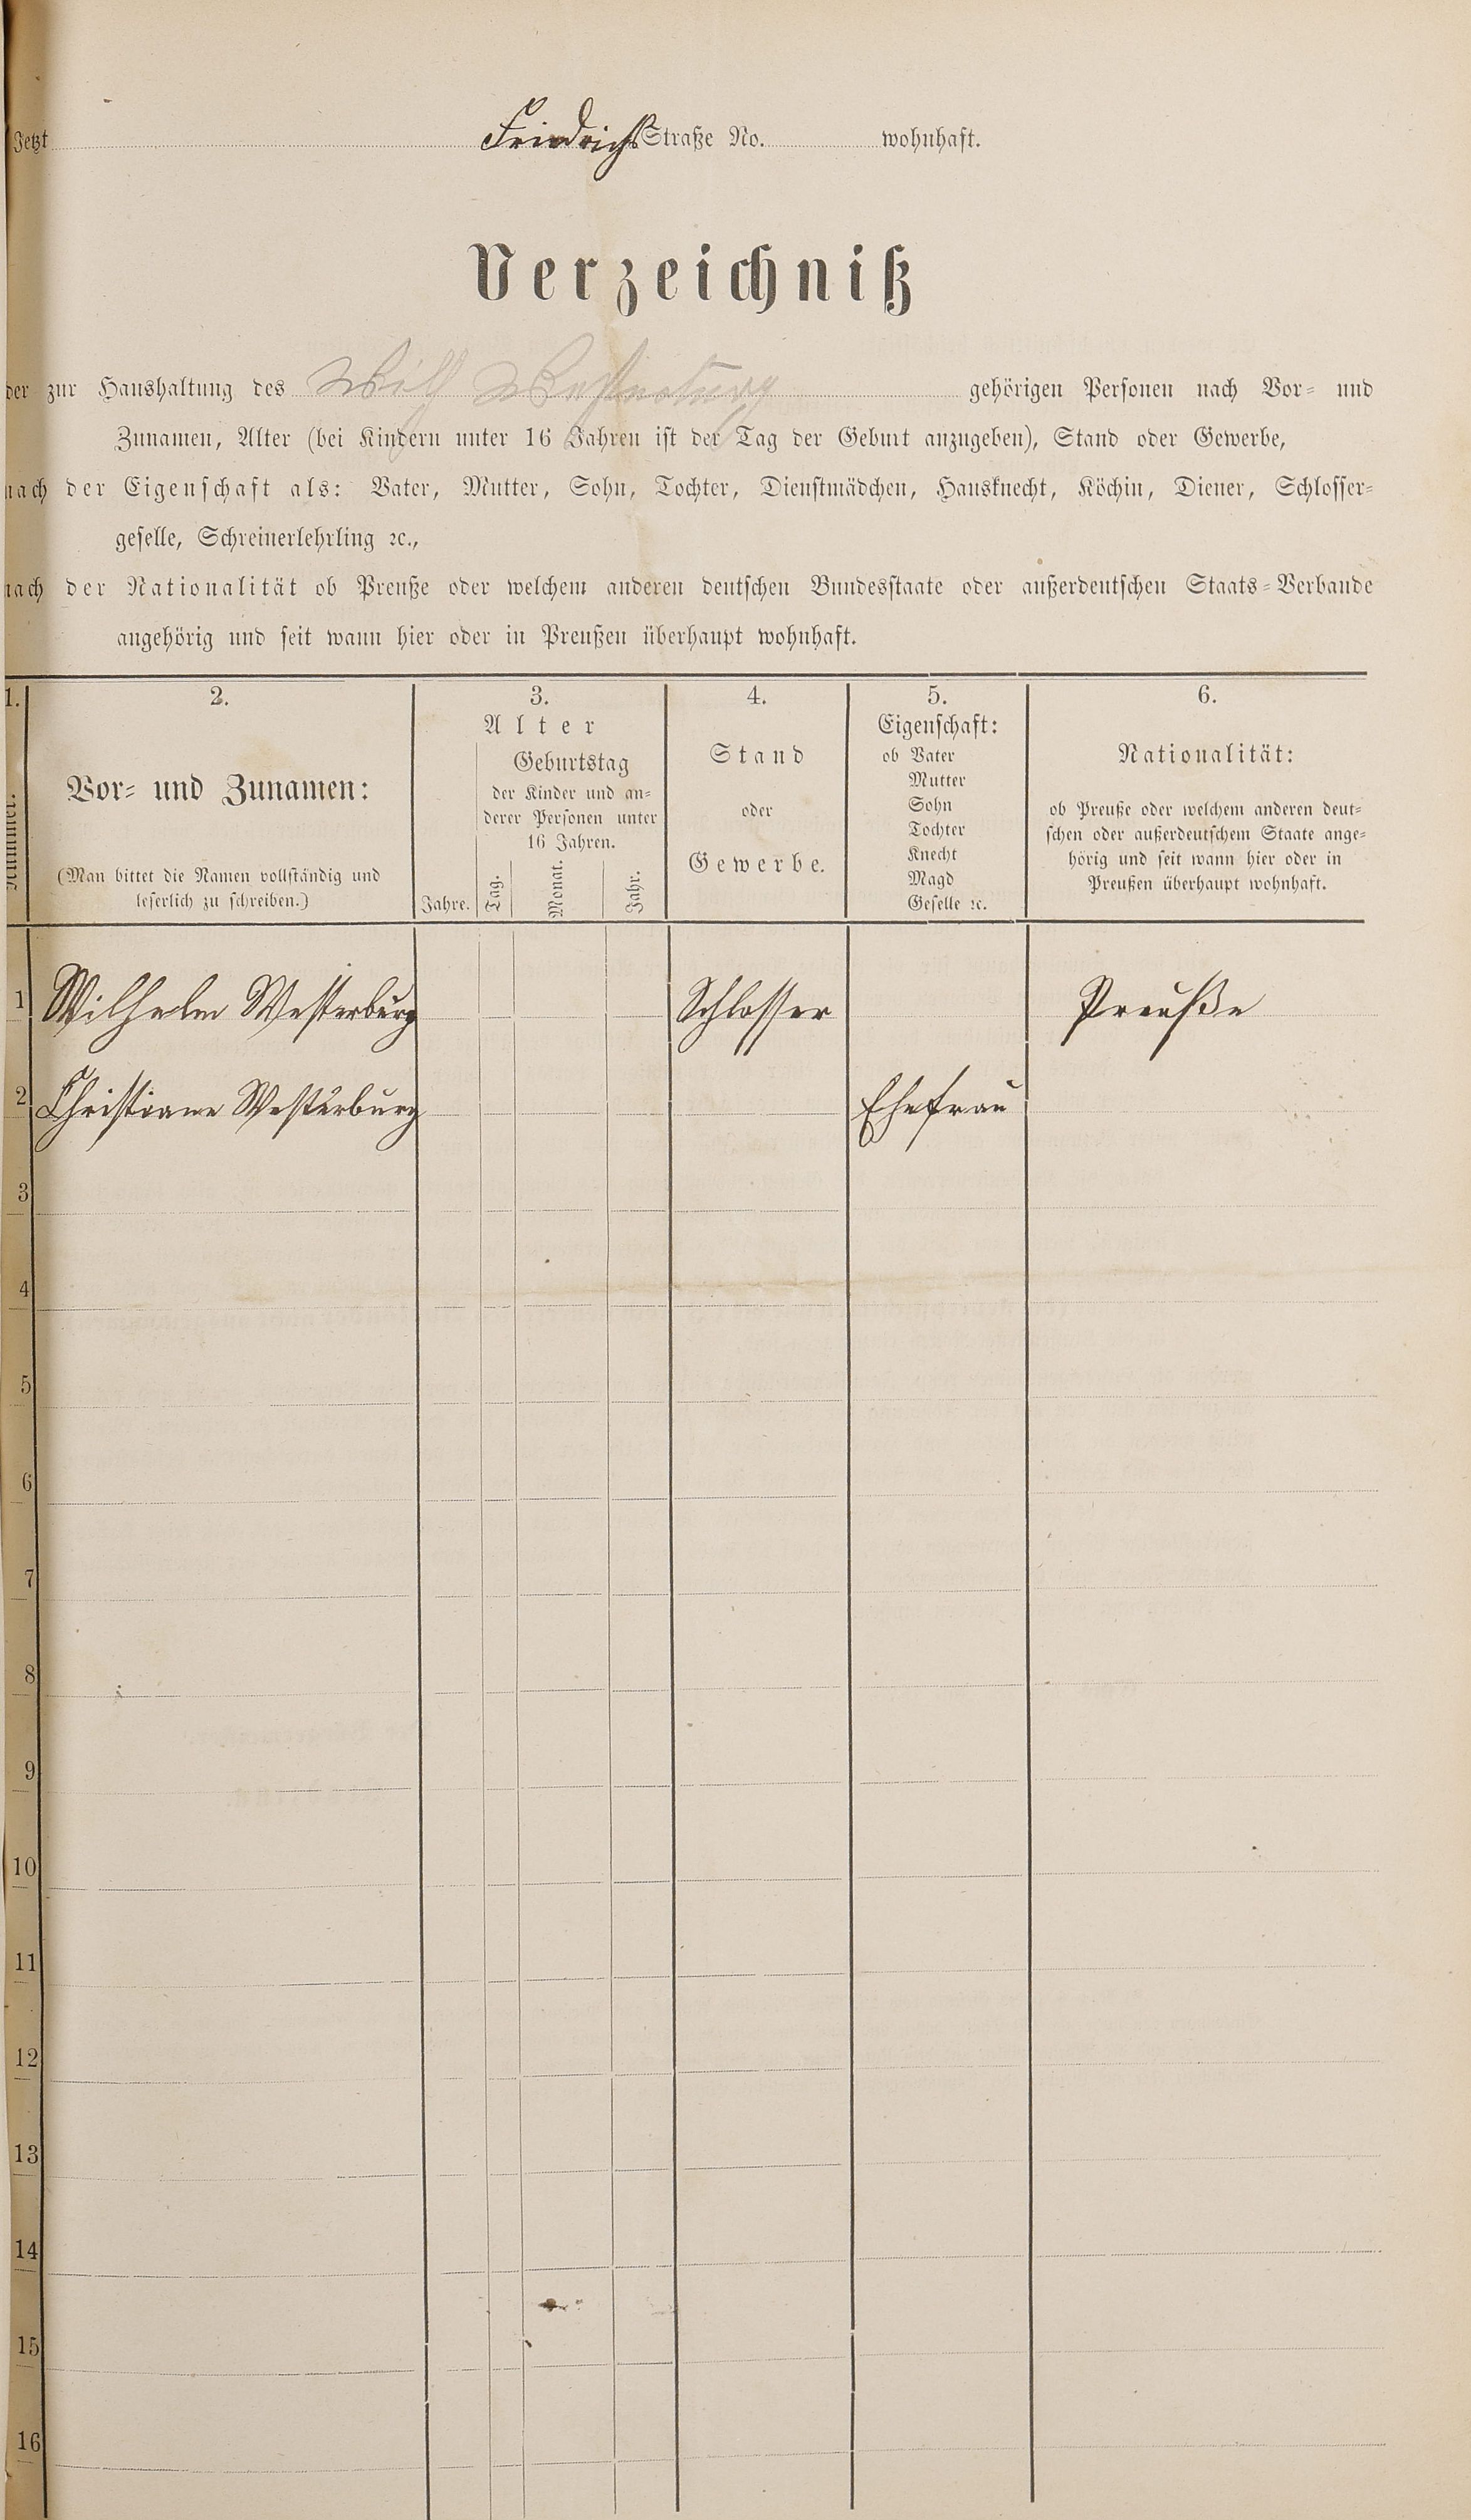 Jetzt Friedrichs Straße No. wohnhaft.
Verzeichniß
der zur Haushaltung des Wilh Westerburg gehörigen Personen nach Vor- und
Zunamen, Alter (bei Kindern unter 16 Jahren ist der Tag der Geburt anzugeben), Stand oder Gewerbe,
nach der Eigenschaft als: Vater, Mutter, Sohn, Tochter, Dienstmädchen, Hausknecht, Köchin, Diener, Schlosser-
geselle, Schreinerlehrling ꝛc.,
nach der Nationalität ob Preuße oder welchem anderen deutschen Bundesstaate oder außerdeutschen Staats-Verbande
angehörig und seit wann hier oder in Preußen überhaupt wohnhaft.
1. 2. 3. 4. 5. 6.
Nummer.
Vor- und Zunamen:
(Man bittet die Namen vollständig und
leserlich zu schreiben.)
Alter
Geburtstag
der Kinder und an-
derer Personen unter
16 Jahren.
Jahre. Tag. Monat. Jahr.
Stand
oder
Gewerbe.
Eigenschaft:
ob Vater
Mutter
Sohn
Tochter
Knecht
Magd
Geselle ꝛc.
Nationalität:
ob Preuße oder welchem anderen deut-
schen oder außerdeutschem Staate ange-
hörig und seit wann hier oder in
Preußen überhaupt wohnhaft.
1 Wilhelm Westerburg Schlosser Preuße
2 Christiane Westerburg Ehefrau
3
4
5
6
7
8
9
10
11
12
13
14
15
16